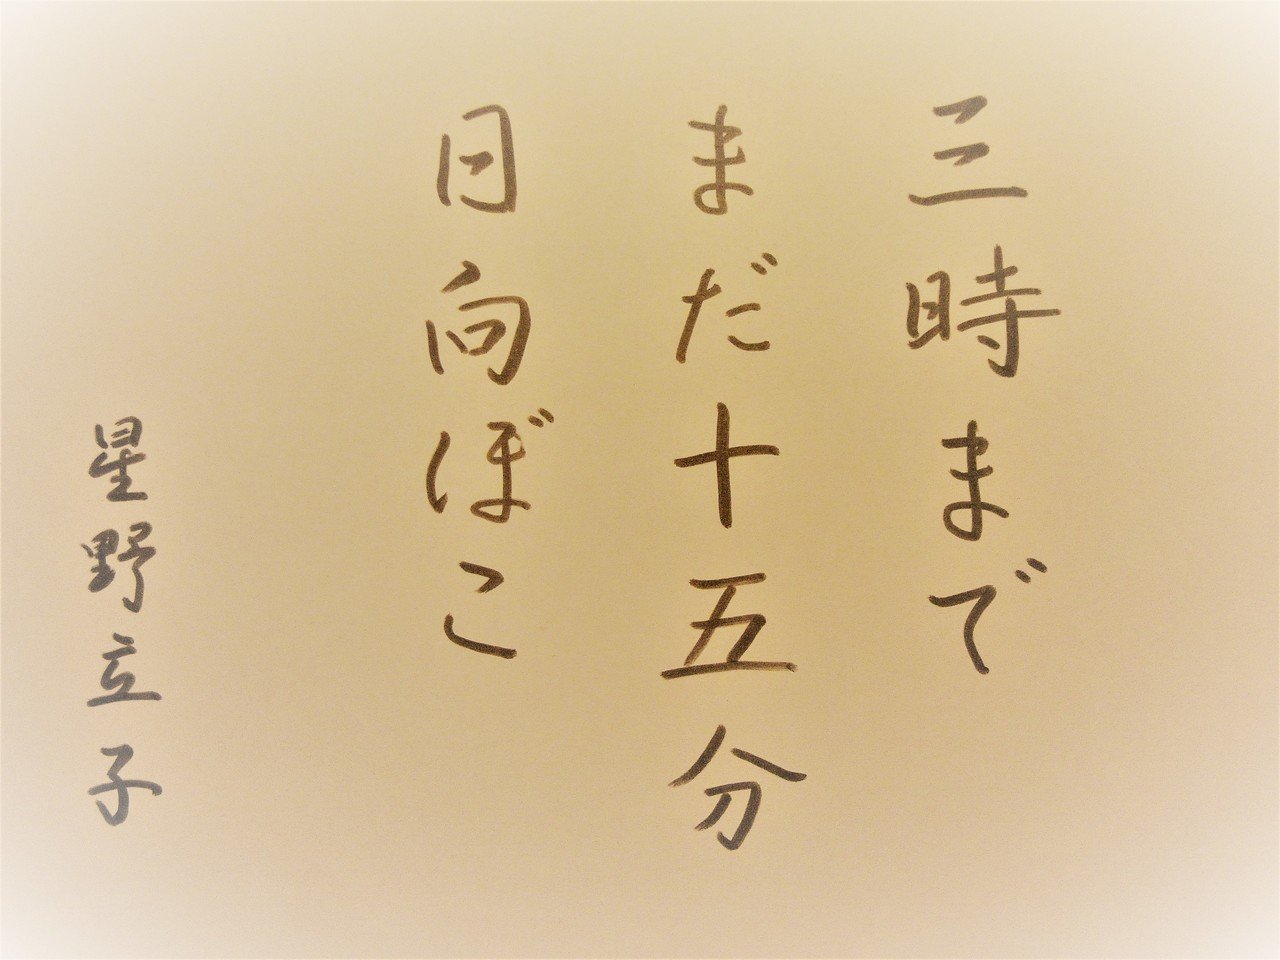 三時まで
まだ十五分
日向ぼこ
星野立子